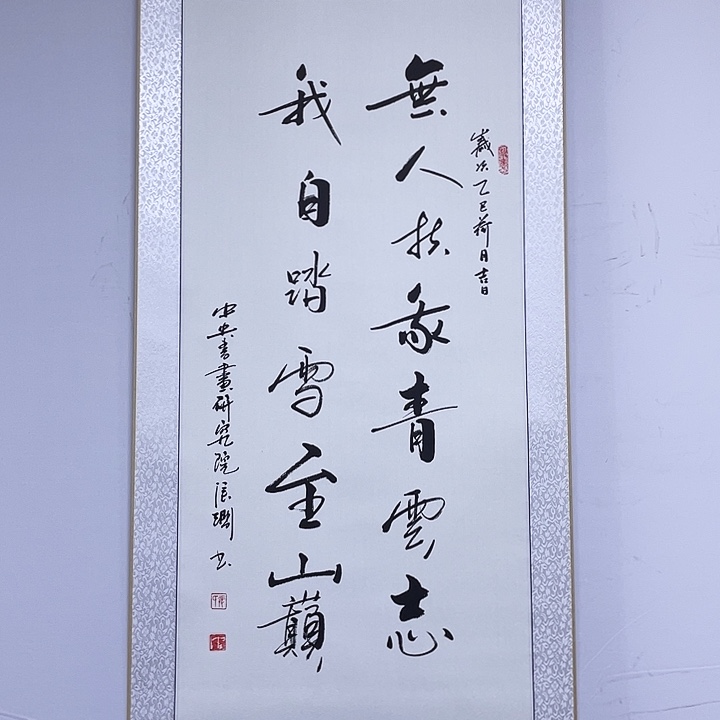 歲次乙巳荷月吉日
無人扶我青雲志
我自踏雪至山巔
中央書畫研究院張
書